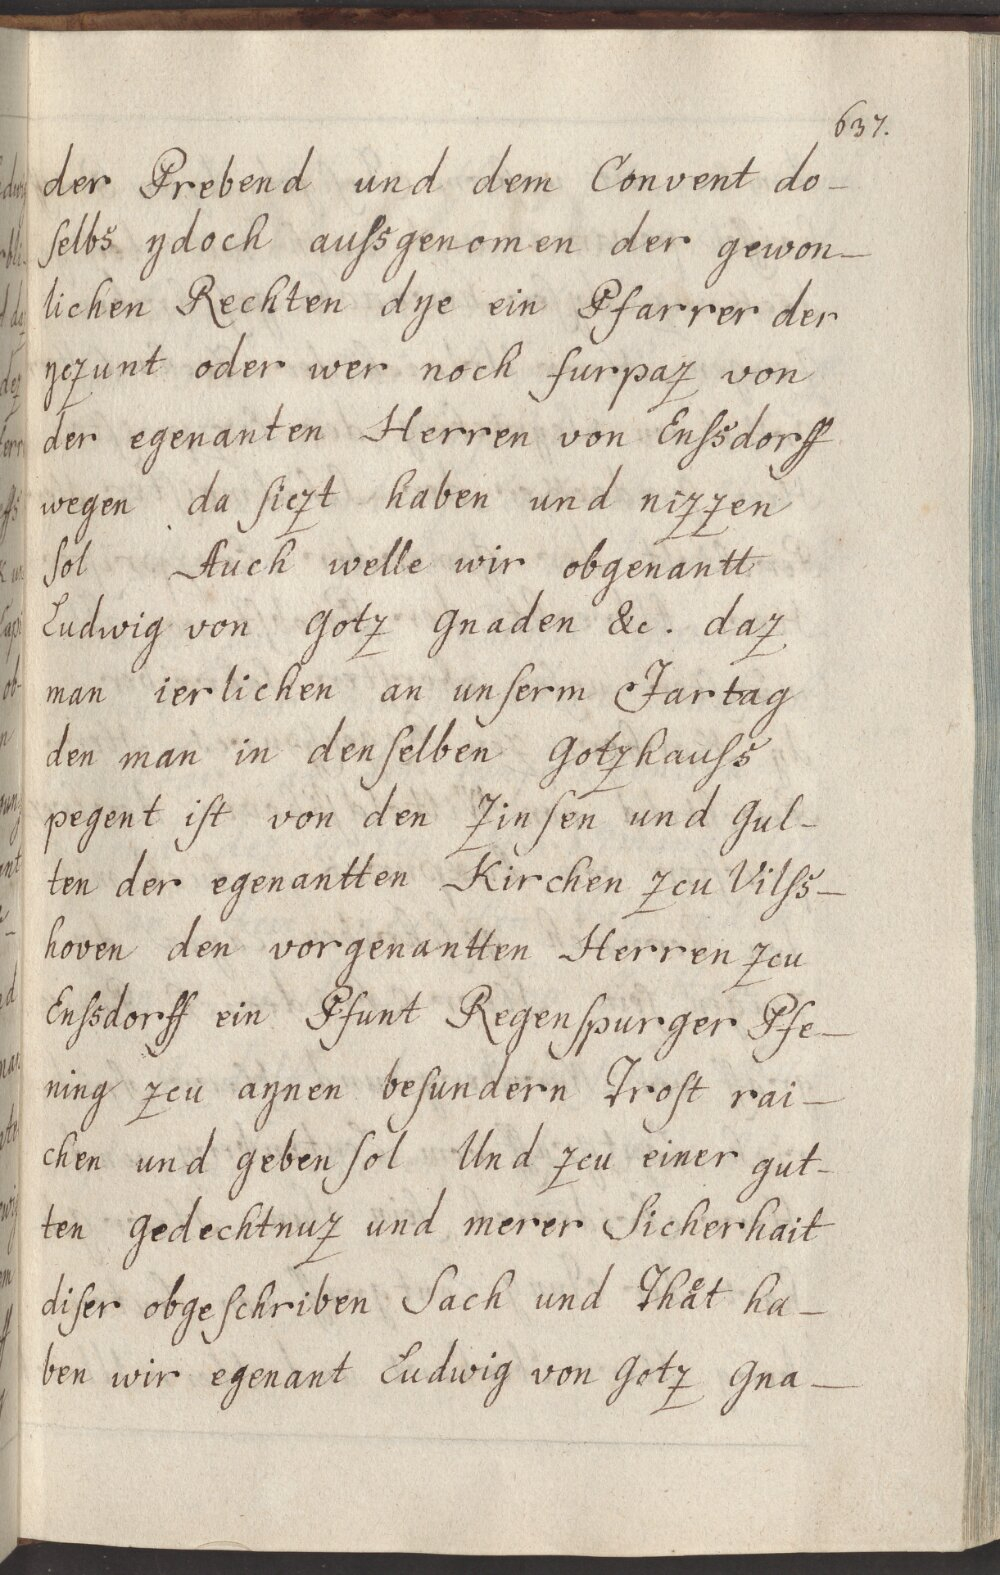 637.
der Prebend und dem Convent do-
selbs ydoch aussgenomen der gewon-
lichen Rechten dye ein Pfarrer der
yczunt oder wer noch furpaz von
der egenanten Herren von Enssdorff
wegen da siczt haben und nizzen
sol Auch welle wir obgenantt
Ludwig von Gotz Gnaden &c. daz
man ierlichen an unserm Jartag
den man in denselben Gotzhauss
pegent ist von den Zinsen und Gul-
ten der egenantten Kirchen zcu Vilss-
hoven den vorgenantten Herren zcu
Enssdorff ein Pfunt Regenspurger Pfe-
ning zcu aynen besundern Trost rai-
chen und geben sol Und zcu einer gut-
ten Gedechtnuz und merer Sicherhait
diser obgeschriben Sach und Thåt ha-
ben wir egenant Ludwig von Gotz Gna-